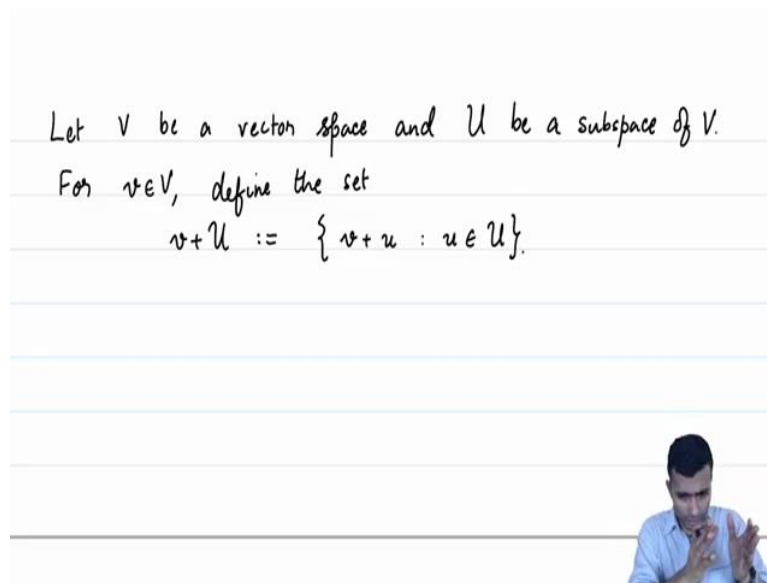 Let V be a vector space and U be a subspace of V.
For v ∈ V, define the set
v + U := { v + u : u ∈ U }.